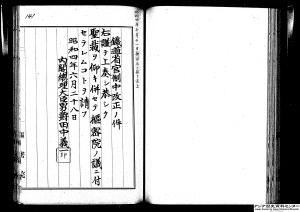 141
鐵道省官制中改正ノ件
右謹テ上奏シ恭シク
聖裁ヲ仰キ併セテ樞密院ノ議ニ付
セラレムコトヲ請フ
昭和四年六月二十八日
内閣總理大臣男爵田中義一
印